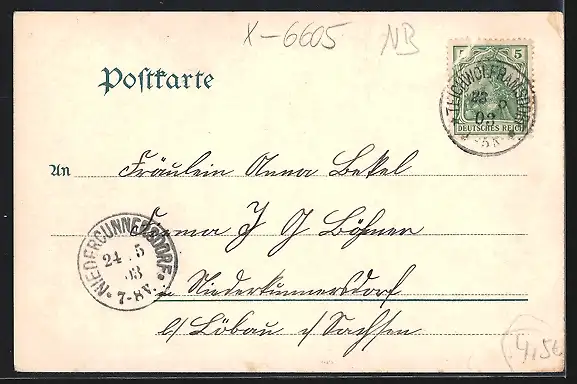 X-6605 NB
Postkarte
5
TEICHWOLFRAMSDORF
23 5
03
DEUTSCHES REICH
An Fräulein Anna Bekel
Firma J G Böhmer
NIEDERCUNNERSDORF
24 . 5
03
7-8V.
in Niederkunnersdorf
b/ Löbau i/ Sachsen
4,50